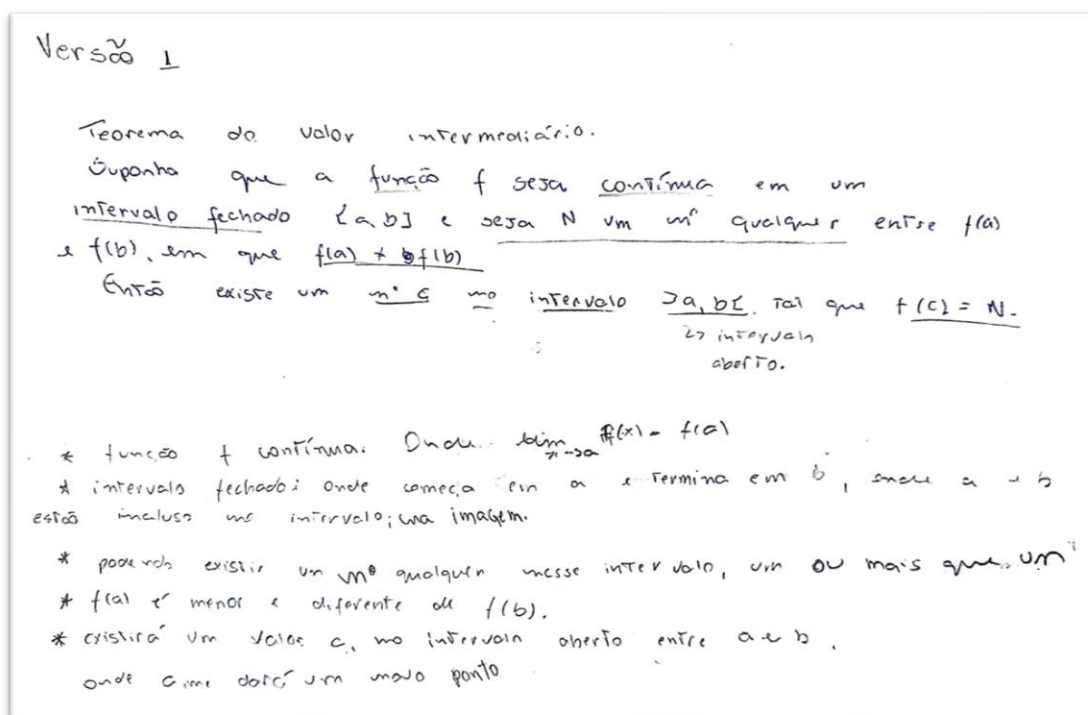 Versão 1
Teorema do valor intermediário.
Suponha que a função f seja contínua em um
intervalo fechado [a,b] e seja N um nº qualquer entre f(a)
e f(b), em que f(a) ≠ f(b)
Então existe um nº c no intervalo ]a, b[. Tal que f(c) = N.
↳ intervalo
aberto.
* função f contínua. Onde lim x→a f(x) = f(a)
* intervalo fechado: onde começa em a e termina em b, onde a e b
estão incluso no intervalo; na imagem.
* podendo existir um nº qualquer nesse intervalo, um ou mais que um
* f(a) é menor e diferente de f(b).
* existirá um valor c, no intervalo aberto entre a e b.
onde c me dará um novo ponto